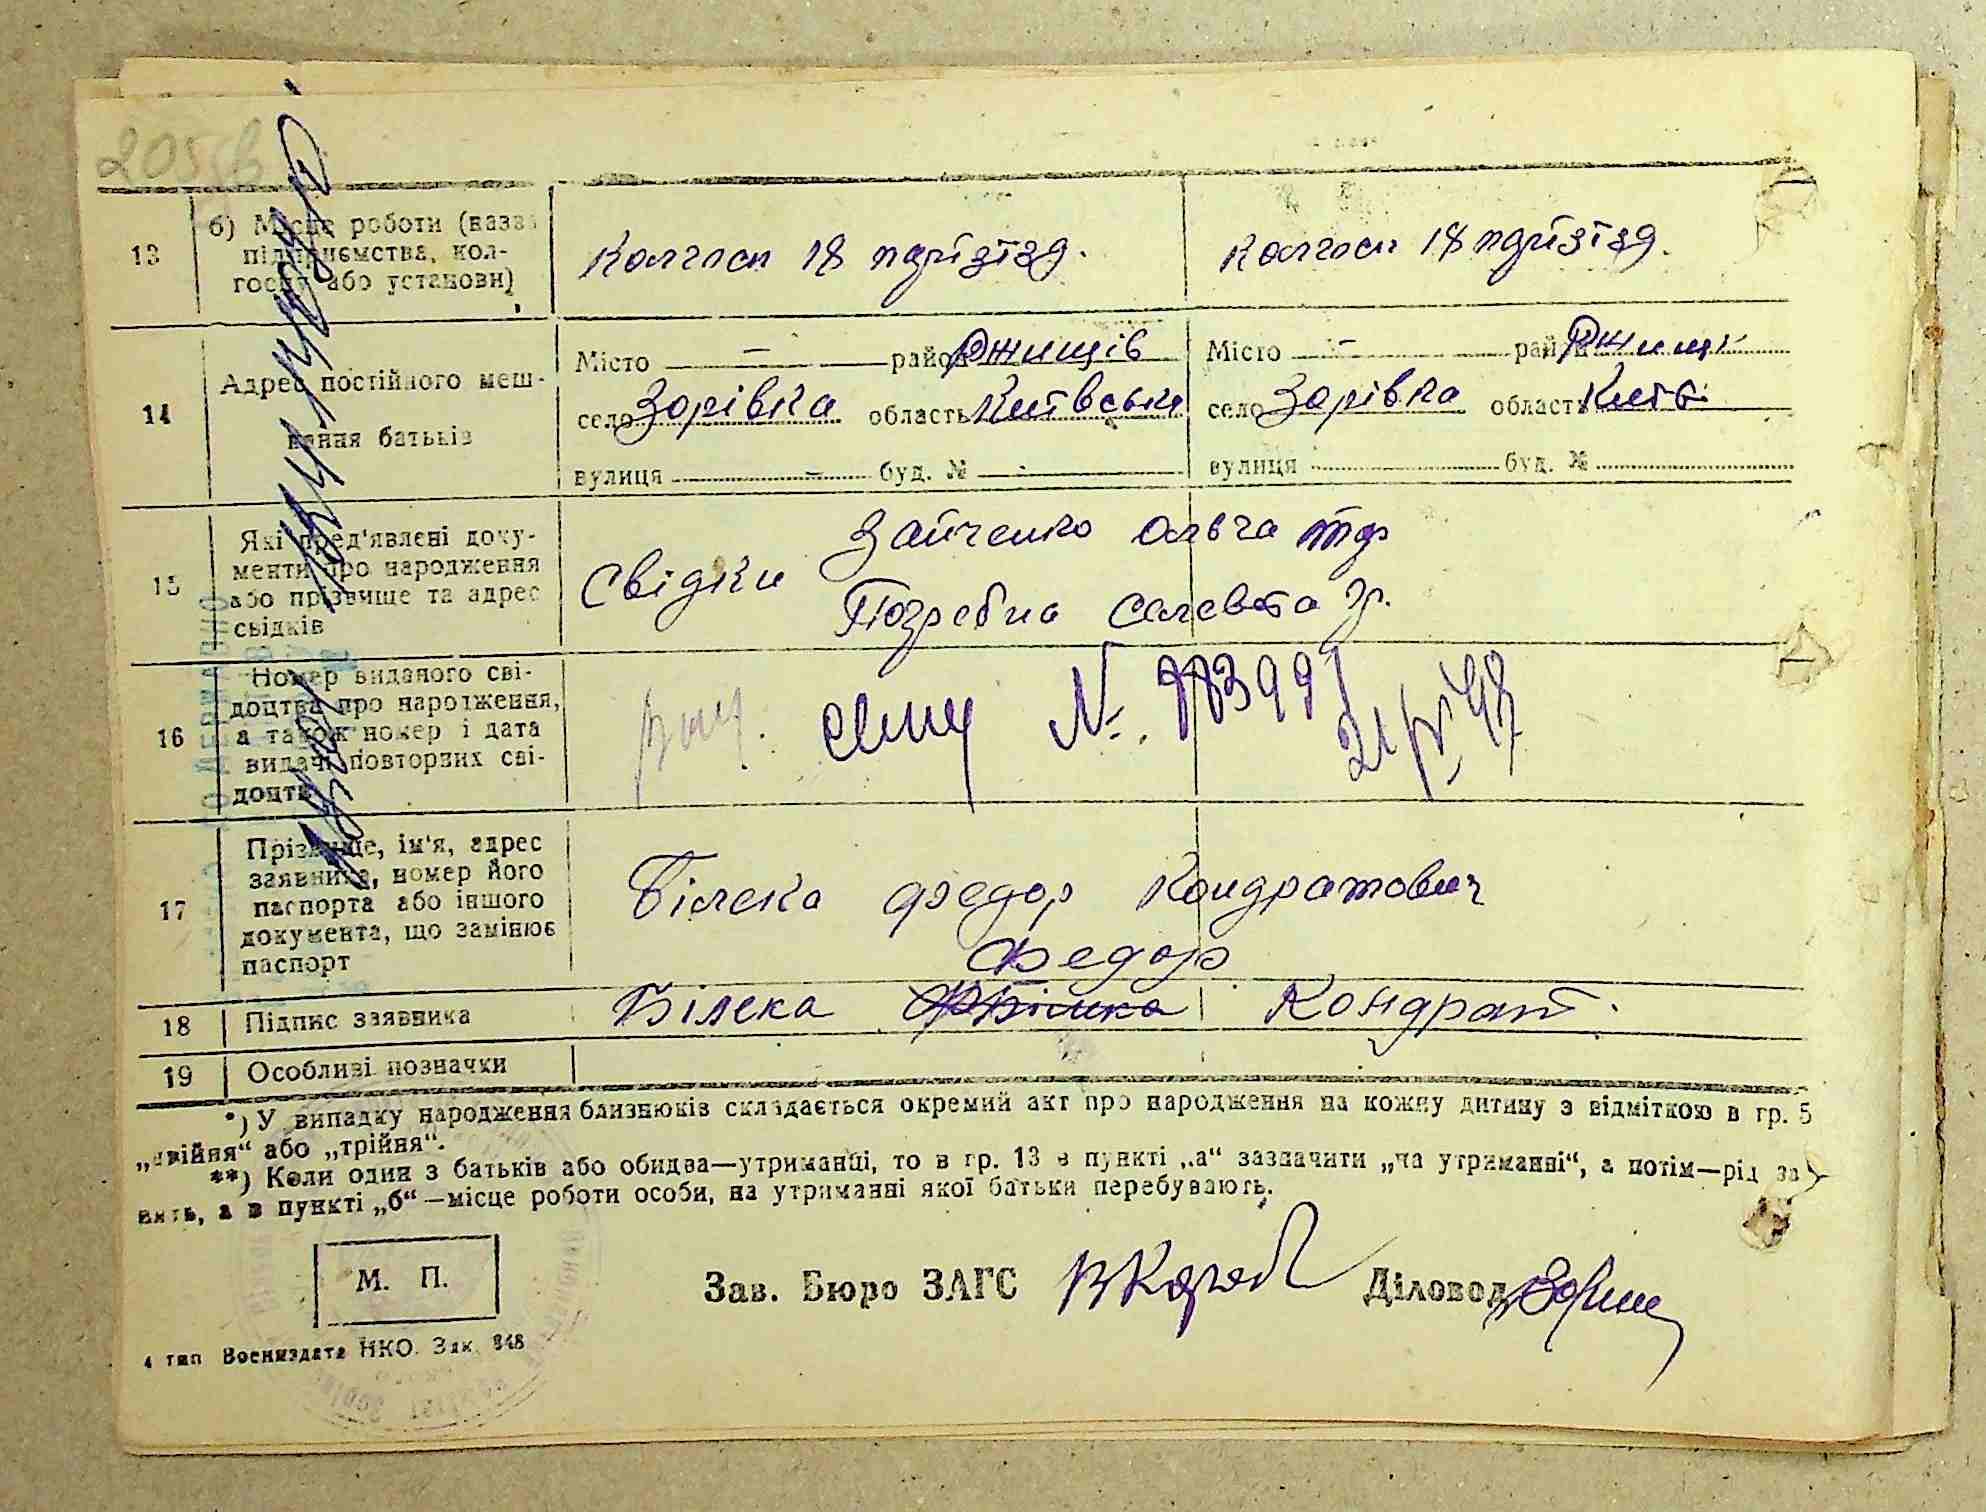 205 зв
13
б) Місце роботи (назва
підприємства, кол-
госпу або установи)
Колгосп 18 партізїзд.
Колгосп 18 партізїзд.
14
Адрес постійного меш-
кання батьків
Місто — район Ржищів
село Зорівка область Київська
вулиця — буд. № —
Місто — район Ржищ
село Зорівка область Київ
вулиця буд. №
15
Які пред'явлені доку-
менти про народження
або прізвище та адрес
свідків
Свідки
Зайченко Ольга
Погребна
16
Номер виданого сві-
доцтва про народження,
а також номер і дата
видачі повторних сві-
доцтв
№
17
Прізвище, ім'я, адрес
заявника, номер його
паспорта або іншого
документа, що замінює
паспорт
Білека Федор Кондратович
18
Підпис заявника
Федор
Білека Кондрат.
19
Особливі позначки
*) У випадку народження близнюків складається окремий акт про народження на кожну дитину з відміткою в гр. 5
„двійня“ або „трійня“.
**) Коли один з батьків або обидва—утриманці, то в гр. 13 в пункті „а“ зазначити „на утриманні“, а потім—рід за
нять, а в пункті „б“—місце роботи особи, на утриманні якої батьки перебувають.
М. П.
Зав. Бюро ЗАГС
Діловод
4 тип Воениздата НКО. Зак. 848